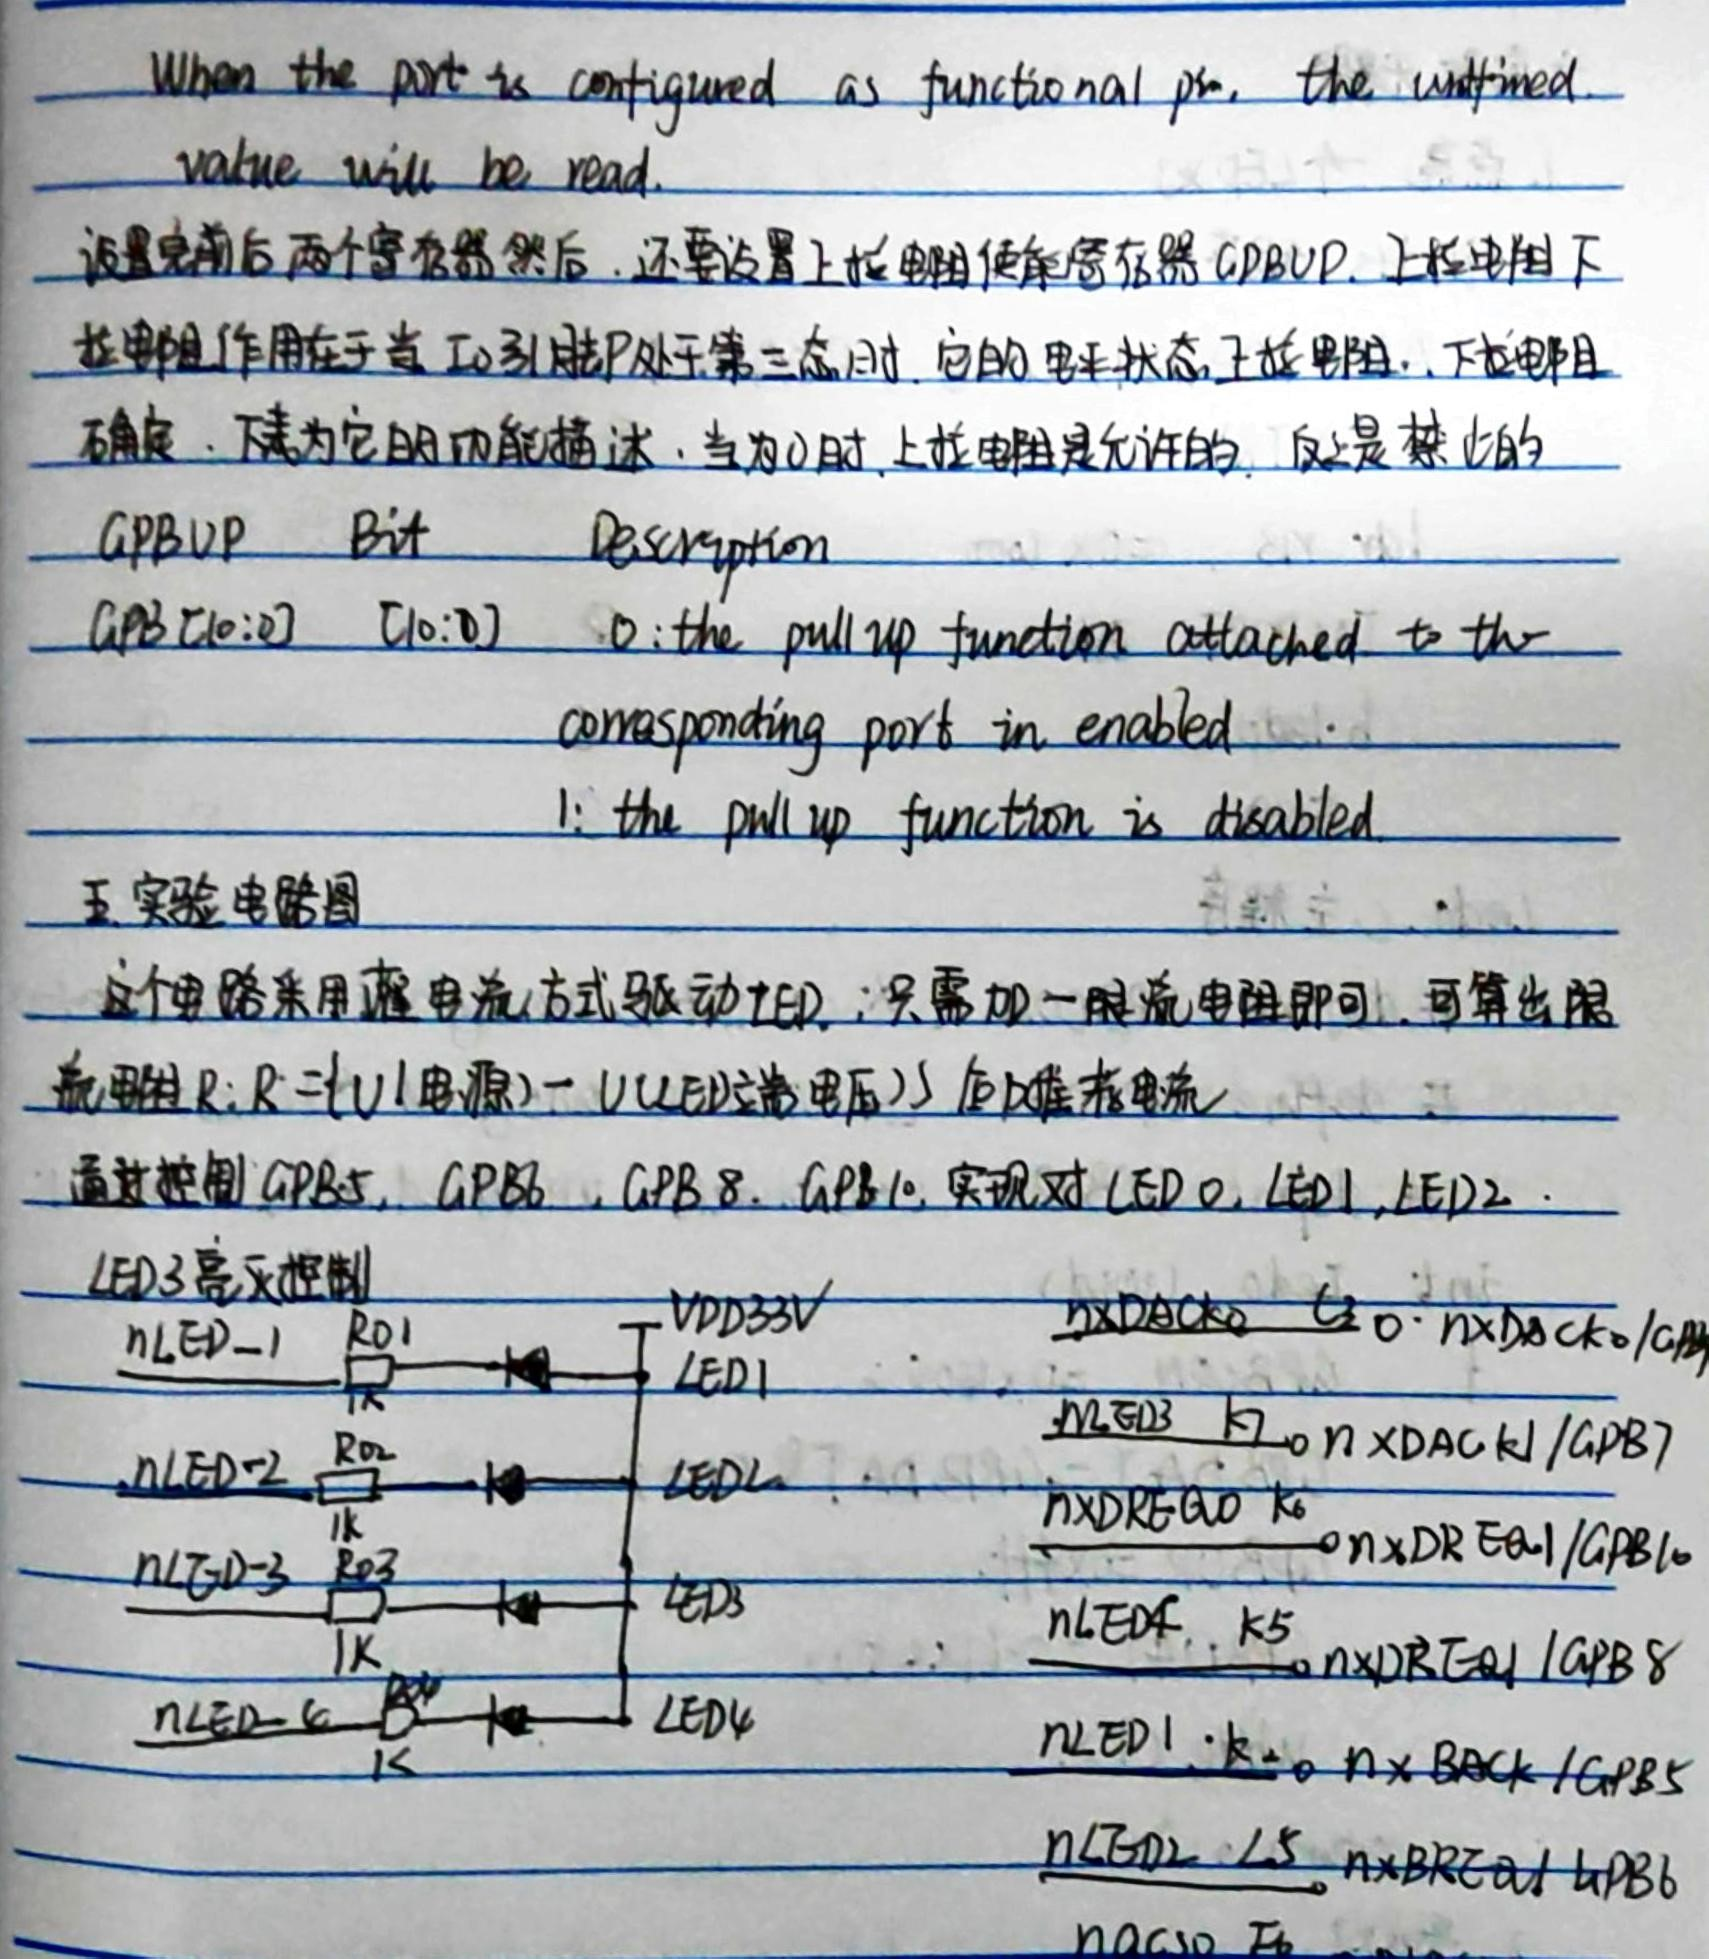 When the port is configured as functional pin. the undfined
value will be read.
设置完前后两个寄存器然后.还要设置上拉电阻使能寄存器GPBUP.上拉电阻下
拉电阻作用在于当IO引脚P处于第三态时.它的电平状态上拉电阻..下拉电阻
确定.下表为它的功能描述.当为0时.上拉电阻是允许的.反之是禁止的
GPBUP Bit Description
GPB[10:0] [10:0] 0:the pull up function attached to the
corresponding port in enabled
1: the pull up function is disabled.
五.实验电路图
这个电路采用灌电流方式驱动LED.:只需加一限流电阻即可.可算出限
流电阻R:R={U(电源)-U(LED端电压)}
通过控制GPB5, GPB6, GPB8. GPB10.实现对LED0, LED1, LED2.
LED3亮灭控制
VDD33V
nLED-1 R01 1K LED1
nLED-2 R02 1K LED2
nLED-3 R03 1K LED3
nLED-4 1K LED4
nxDACK0 nxDACK0/GPB9
nLED3 K7 nXDACK1/GPB7
nXDREQ0 K6 nxDREQ1/GPB10
nLED4 K5 nxDREQ1/GPB8
nLED1 nxBACK/GPB5
nLED2 L5 nxBREQ/GPB6